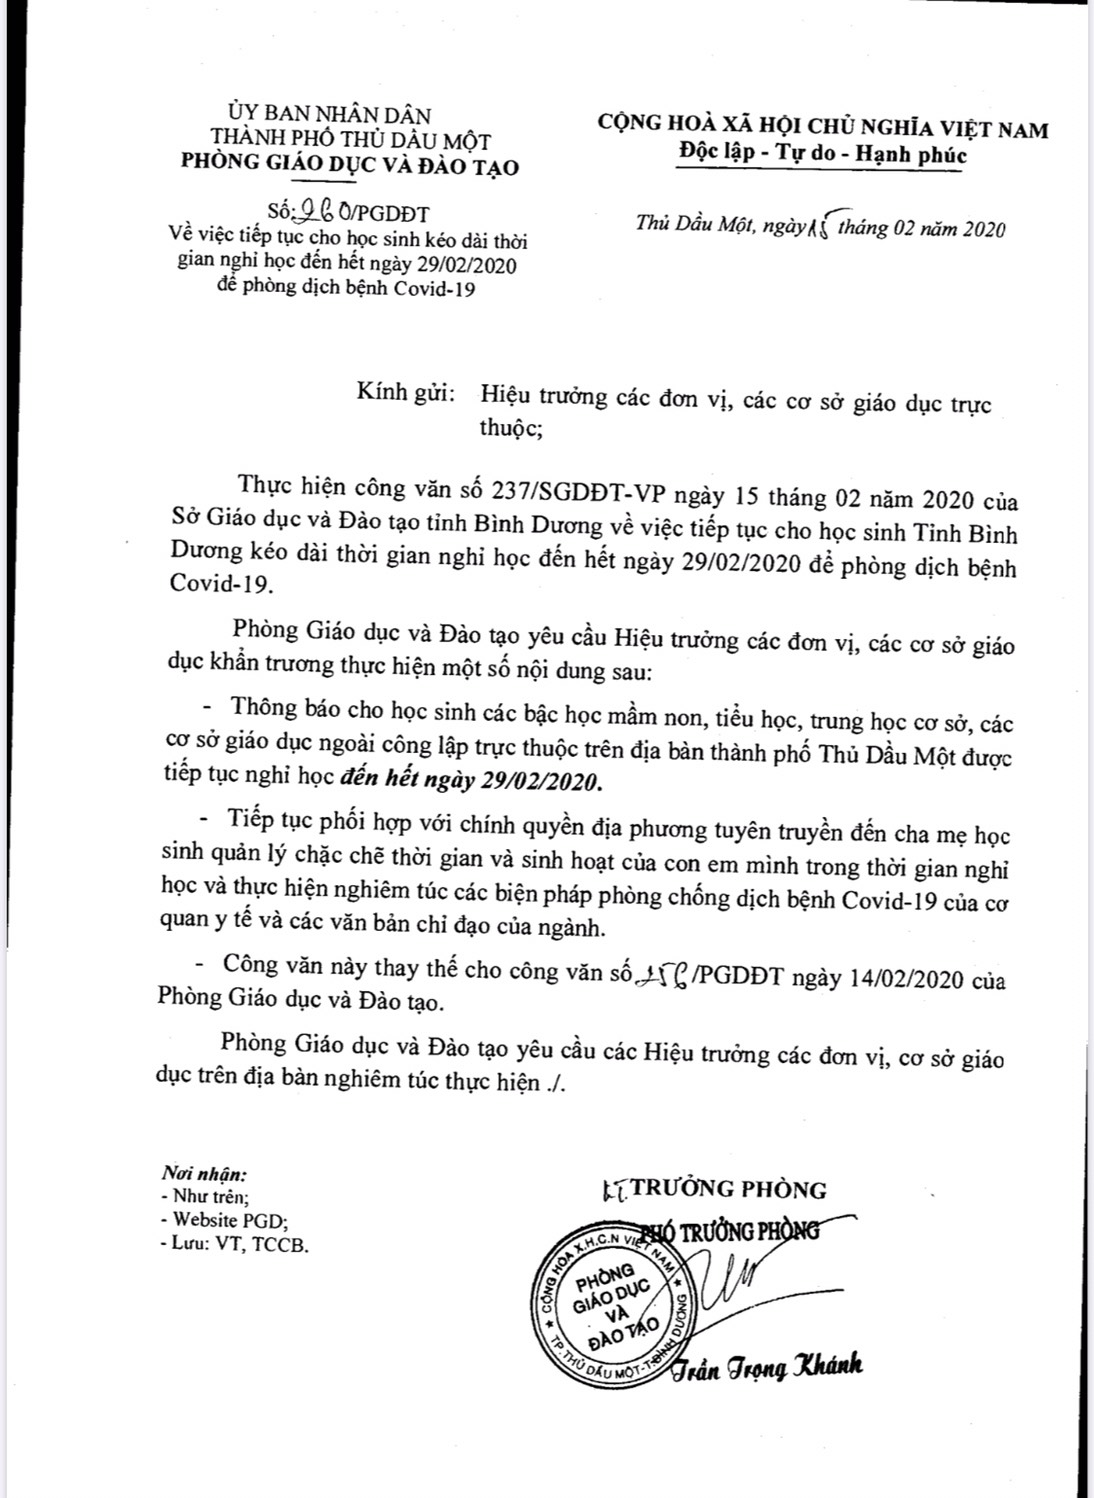 ỦY BAN NHÂN DÂN
THÀNH PHỐ THỦ DẦU MỘT
PHÒNG GIÁO DỤC VÀ ĐÀO TẠO
CỘNG HOÀ XÃ HỘI CHỦ NGHĨA VIỆT NAM
Độc lập - Tự do - Hạnh phúc
Số: 260/PGDĐT
Về việc tiếp tục cho học sinh kéo dài thời
gian nghỉ học đến hết ngày 29/02/2020
để phòng dịch bệnh Covid-19
Thủ Dầu Một, ngày 15 tháng 02 năm 2020
Kính gửi: Hiệu trưởng các đơn vị, các cơ sở giáo dục trực
thuộc;
Thực hiện công văn số 237/SGDĐT-VP ngày 15 tháng 02 năm 2020 của
Sở Giáo dục và Đào tạo tỉnh Bình Dương về việc tiếp tục cho học sinh Tỉnh Bình
Dương kéo dài thời gian nghỉ học đến hết ngày 29/02/2020 để phòng dịch bệnh
Covid-19.
Phòng Giáo dục và Đào tạo yêu cầu Hiệu trưởng các đơn vị, các cơ sở giáo
dục khẩn trương thực hiện một số nội dung sau:
- Thông báo cho học sinh các bậc học mầm non, tiểu học, trung học cơ sở, các
cơ sở giáo dục ngoài công lập trực thuộc trên địa bàn thành phố Thủ Dầu Một được
tiếp tục nghỉ học đến hết ngày 29/02/2020.
- Tiếp tục phối hợp với chính quyền địa phương tuyên truyền đến cha mẹ học
sinh quản lý chặc chẽ thời gian và sinh hoạt của con em mình trong thời gian nghỉ
học và thực hiện nghiêm túc các biện pháp phòng chống dịch bệnh Covid-19 của cơ
quan y tế và các văn bản chỉ đạo của ngành.
- Công văn này thay thế cho công văn số /PGDĐT ngày 14/02/2020 của
Phòng Giáo dục và Đào tạo.
Phòng Giáo dục và Đào tạo yêu cầu các Hiệu trưởng các đơn vị, cơ sở giáo
dục trên địa bàn nghiêm túc thực hiện ./.
Nơi nhận:
- Như trên;
- Website PGD;
- Lưu: VT, TCCB.
KT. TRƯỞNG PHÒNG
PHÓ TRƯỞNG PHÒNG
CỘNG HÒA X.H.C.N VIỆT NAM
PHÒNG
GIÁO DỤC
VÀ
ĐÀO TẠO
TP. THỦ DẦU MỘT-T.BÌNH DƯƠNG
Trần Trọng Khánh